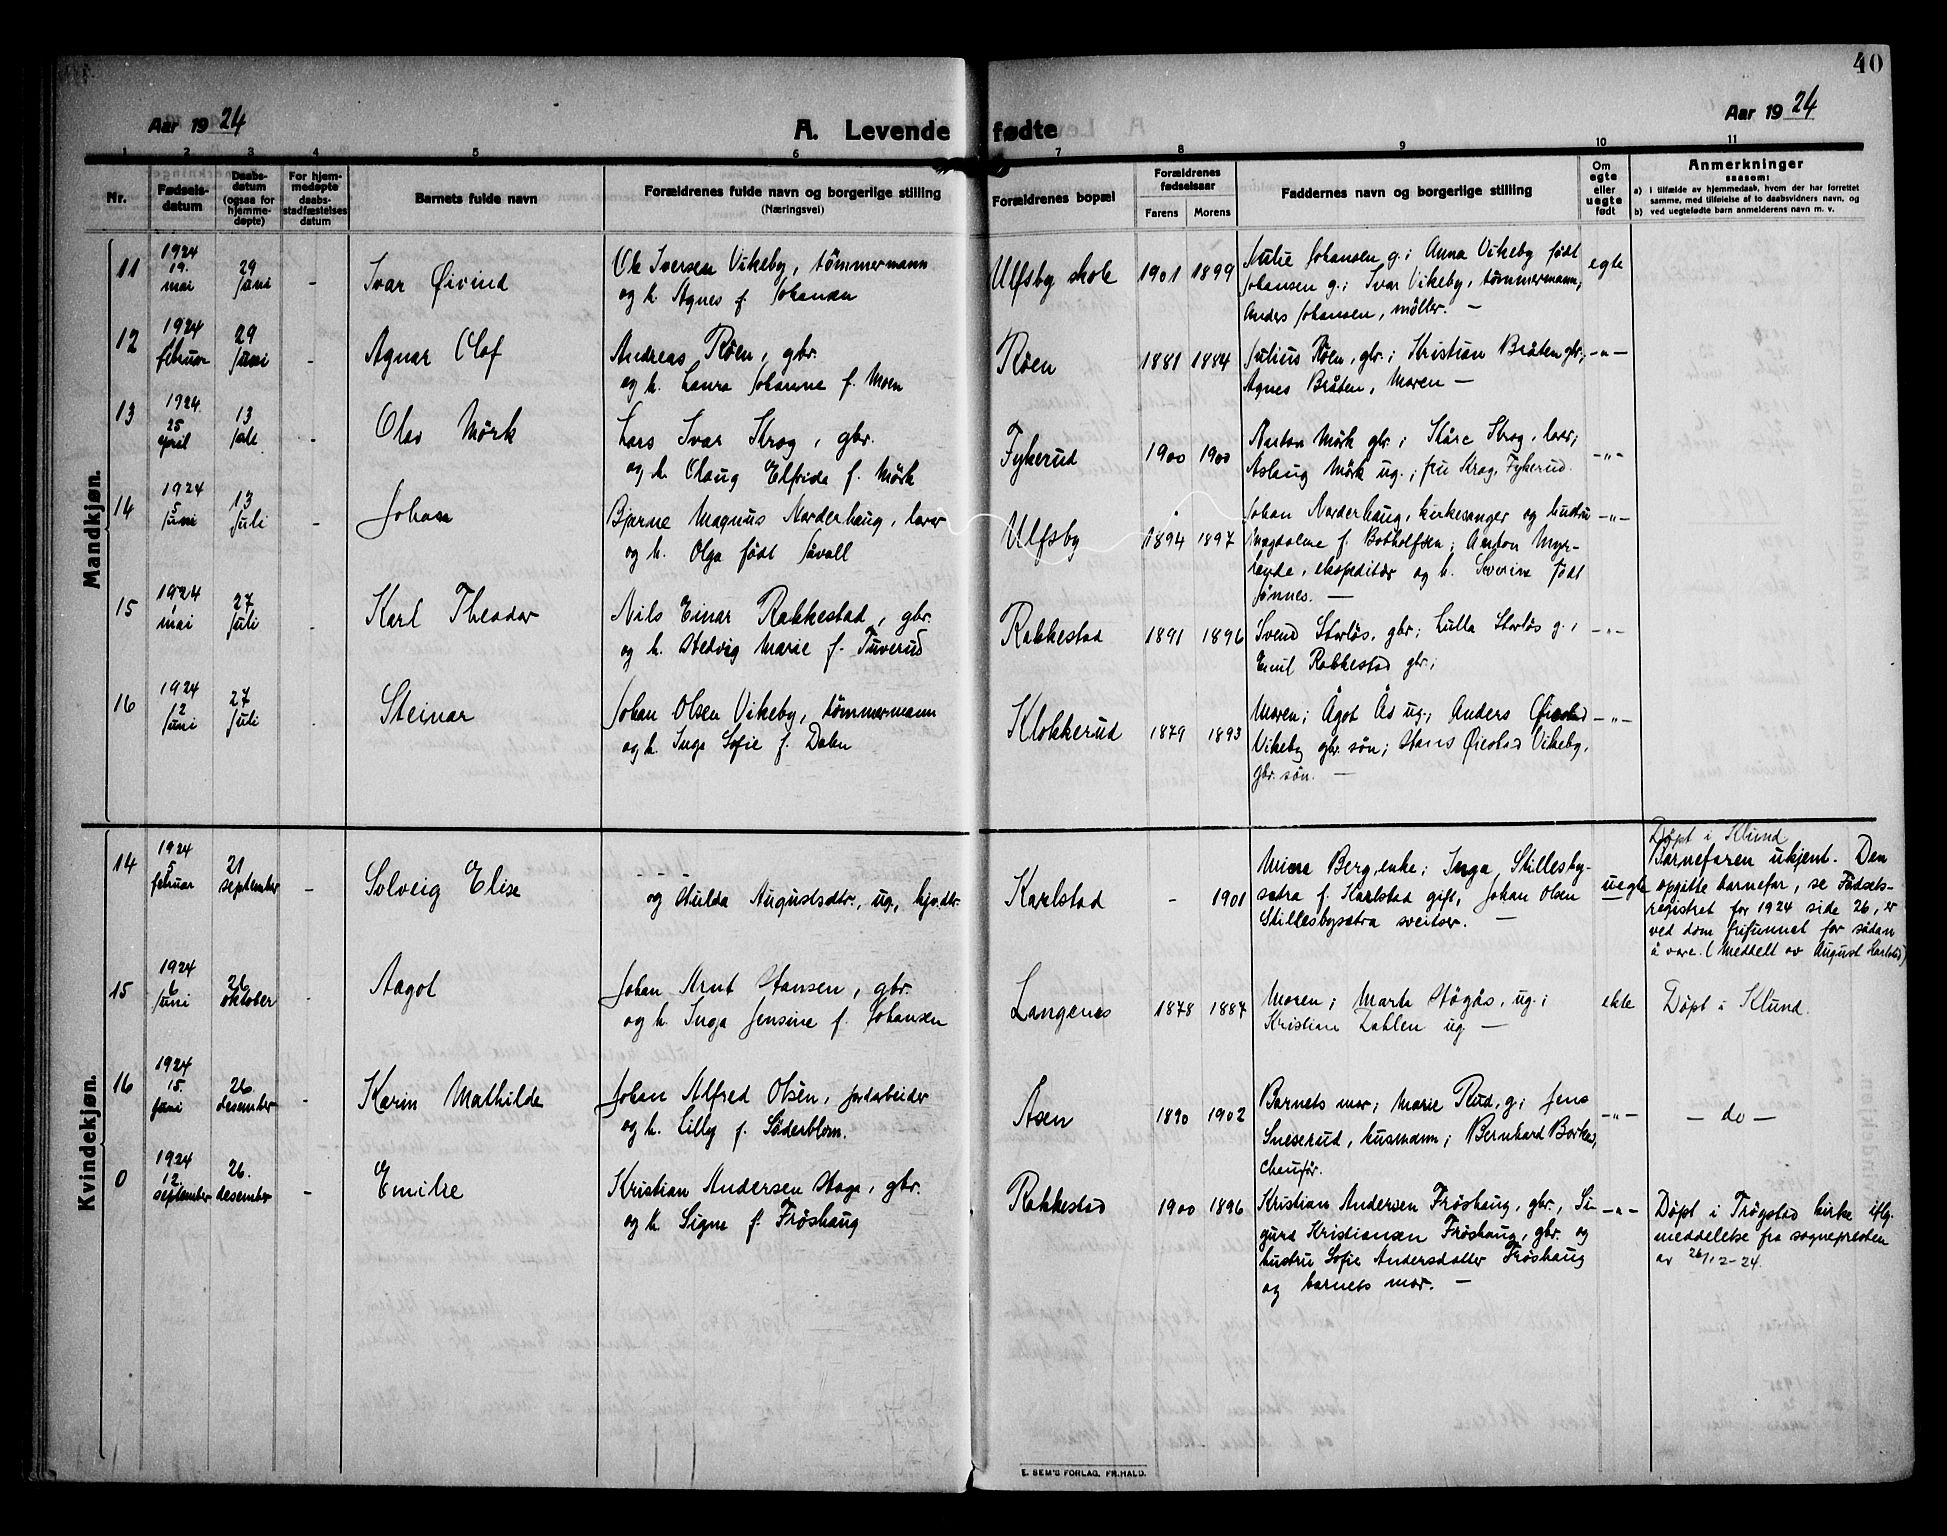 40
Aar 1924
A. Levende fødte
Aar 1924
1 2 3 4 5 6 7 8 9 10 11
Nr.
Fødsels-
datum
Daabs-
datum
(ogsaa for
hjemme-
døpte)
For hjem-
medøpte
daabs-
stadfæstelses
datum
Barnets fulde navn
Forældrenes fulde navn og borgerlige stilling
(Næringsvei)
Forældrenes bopæl
Forældrenes
fødselsaar
Farens Morens
Faddernes navn og borgerlige stilling
Om
egte
eller
uegte
født
Anmerkninger
saasom:
a) i tilfælde av hjemmedaab, hvem der har forrettet
samme, med tilføielse af to daabsvidners navn, og
b) ved uegtefødte barn anmelderens navn m. v.
Mandkjøn.
11
1924
19.
mai
29
juni
-
Ivar Øivind
Ole Iversen Vikeby, tømmermann
og h. Agnes f. Johansen
Ulfsby skole
1901 1899
Julie Johansen g.; Anna Vikeby født
Johansen g.; Ivar Vikeby, tømmermann;
Anders Johansen, møller. –
egte
12
1924
februar
29
juni
-
Agnar Olaf
Andreas Røen, gbr.
og h. Laura Johanne f. Moen
Røen
1881 1884
Julius Røen, gbr.; Kristian Bråten gbr.,
Agnes Bråten, Moren –
-"-
13
1924
25
april
13
juli
-
Olav Mørk
Lars Ivar Krog, gbr.
og h. Olaug Elfrida f. Mørk
Fykerud
1900 1900
Anton Mørk gbr.; Kåre Krog, lærer;
Aslaug Mørk ug.; fru Krog, Fykerud.
-"-
14
1924
5
juni
13
juli
-
Johan
Bjarne Magnus Norderhaug, lærer
og h. Olga født Løvoll
Ulfsby
1894 1897
Johan Norderhaug, kirkesanger og hustru
Magdalene f. Botholfsen; Anton Myr-
ekspeditør og h. Severine født
Jønnes. –
-"-
15
1924
1
mai
27
juli
-
Karl Theodor
Nils Einar Rakkestad, gbr.
og h. Hedvig Marie f. Tuverud
Rakkestad
1891 1896
Svend Storløs, gbr; Lulla Storløs g.,
Emil Rakkestad gbr;
-"-
16
1924
12
juni
27
juli
Steinar
Johan Olsen Vikeby, tømmermann
og h. Inga Sofie f. Dalen
Klokkerud
1879 1893
Moren; Ågot Ås ug.; Anders Øiestad
Vikeby gbr. søn; Hans Øiestad Vikeby,
gbr. søn. –
-"-
Kvindekjøn.
14
1924
5
februar
21
september
-
Solveig Elise
og Hulda Augustsdtr., ug., hjv.dtr.
Karlstad
- 1901
Mina Berg, enke; Inga Stillesby-
sætra f. Karlstad gift, Johan Olsen
Stillesbysætra sveitser. –
uegte
Døpt i Klund
Barnefaren ukjent. Den
opgitte barnefar, se Fødsels-
registret for 1924 side 26, er
ved dom frifunnet for sådan
å være. (Meddelt av August Karlstad)
15
1924
6
juni
26
oktober
-
Aagot
Johan Arnt Hansen, gbr.
og h. Inga Jensine f. Johansen
Langenes
1878 1887
Moren; Marta Høgås, ug.;
Kristian Dahlen ug –
ekte
Døpt i Klund.
16
1924
15.
juni
26
desember
-
Karin Mathilde
Johan Alfred Olsen, jordarbeider
og h. Lilly f. Søderblom.
Åsen
1890 1902
Barnets mor; Marie Rud, g; Jens
Sneserud, husmann; Bernhard
chaufør.
-"-
– do –
0
1924
12
september
26.
desember
-
Emilie
Kristian Andersen Haga, gbr.
og h Signe f. Frøshaug
Rakkestad
1900 1896
Kristian Andersen Frøshaug, gbr., Si-
gurd Kristiansen Frøshaug, gbr. og
hustru Sofie Andersdatter Frøshaug
og barnets mor. –
-"-
Døpt i Trøgstad kirke iflg.
meddelelse fra sognepresten
av 26/12-24.
E. SEM'S FORLAG, FR.HALD.